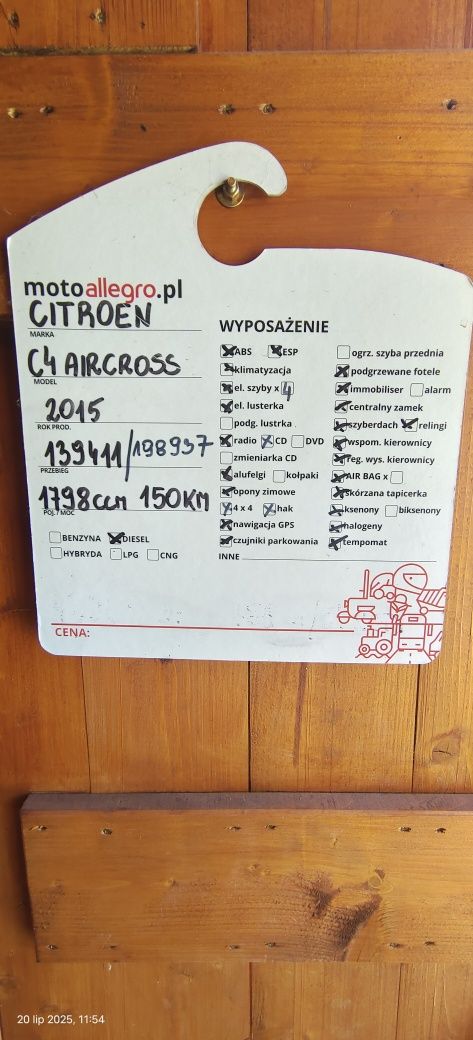 motoallegro.pl
CITROËN
MARKA
C4 AIRCROSS
MODEL
2015
ROK PROD.
139411/198937
PRZEBIEG
1798ccm 150KM
POJ. / MOC
BENZYNA DIESEL
HYBRYDA LPG CNG
WYPOSAŻENIE
ABS ESP
klimatyzacja
el. szyby x 4
el. lusterka
podg. lustrka
radio CD DVD
zmieniarka CD
alufelgi kołpaki
opony zimowe
4 x 4 hak
nawigacja GPS
czujniki parkowania
INNE
ogrz. szyba przednia
podgrzewane fotele
immobiliser alarm
centralny zamek
szyberdach relingi
wspom. kierownicy
reg. wys. kierownicy
AIR BAG x
skórzana tapicerka
ksenony biksenony
halogeny
tempomat
CENA:
20 lip 2025, 11:54